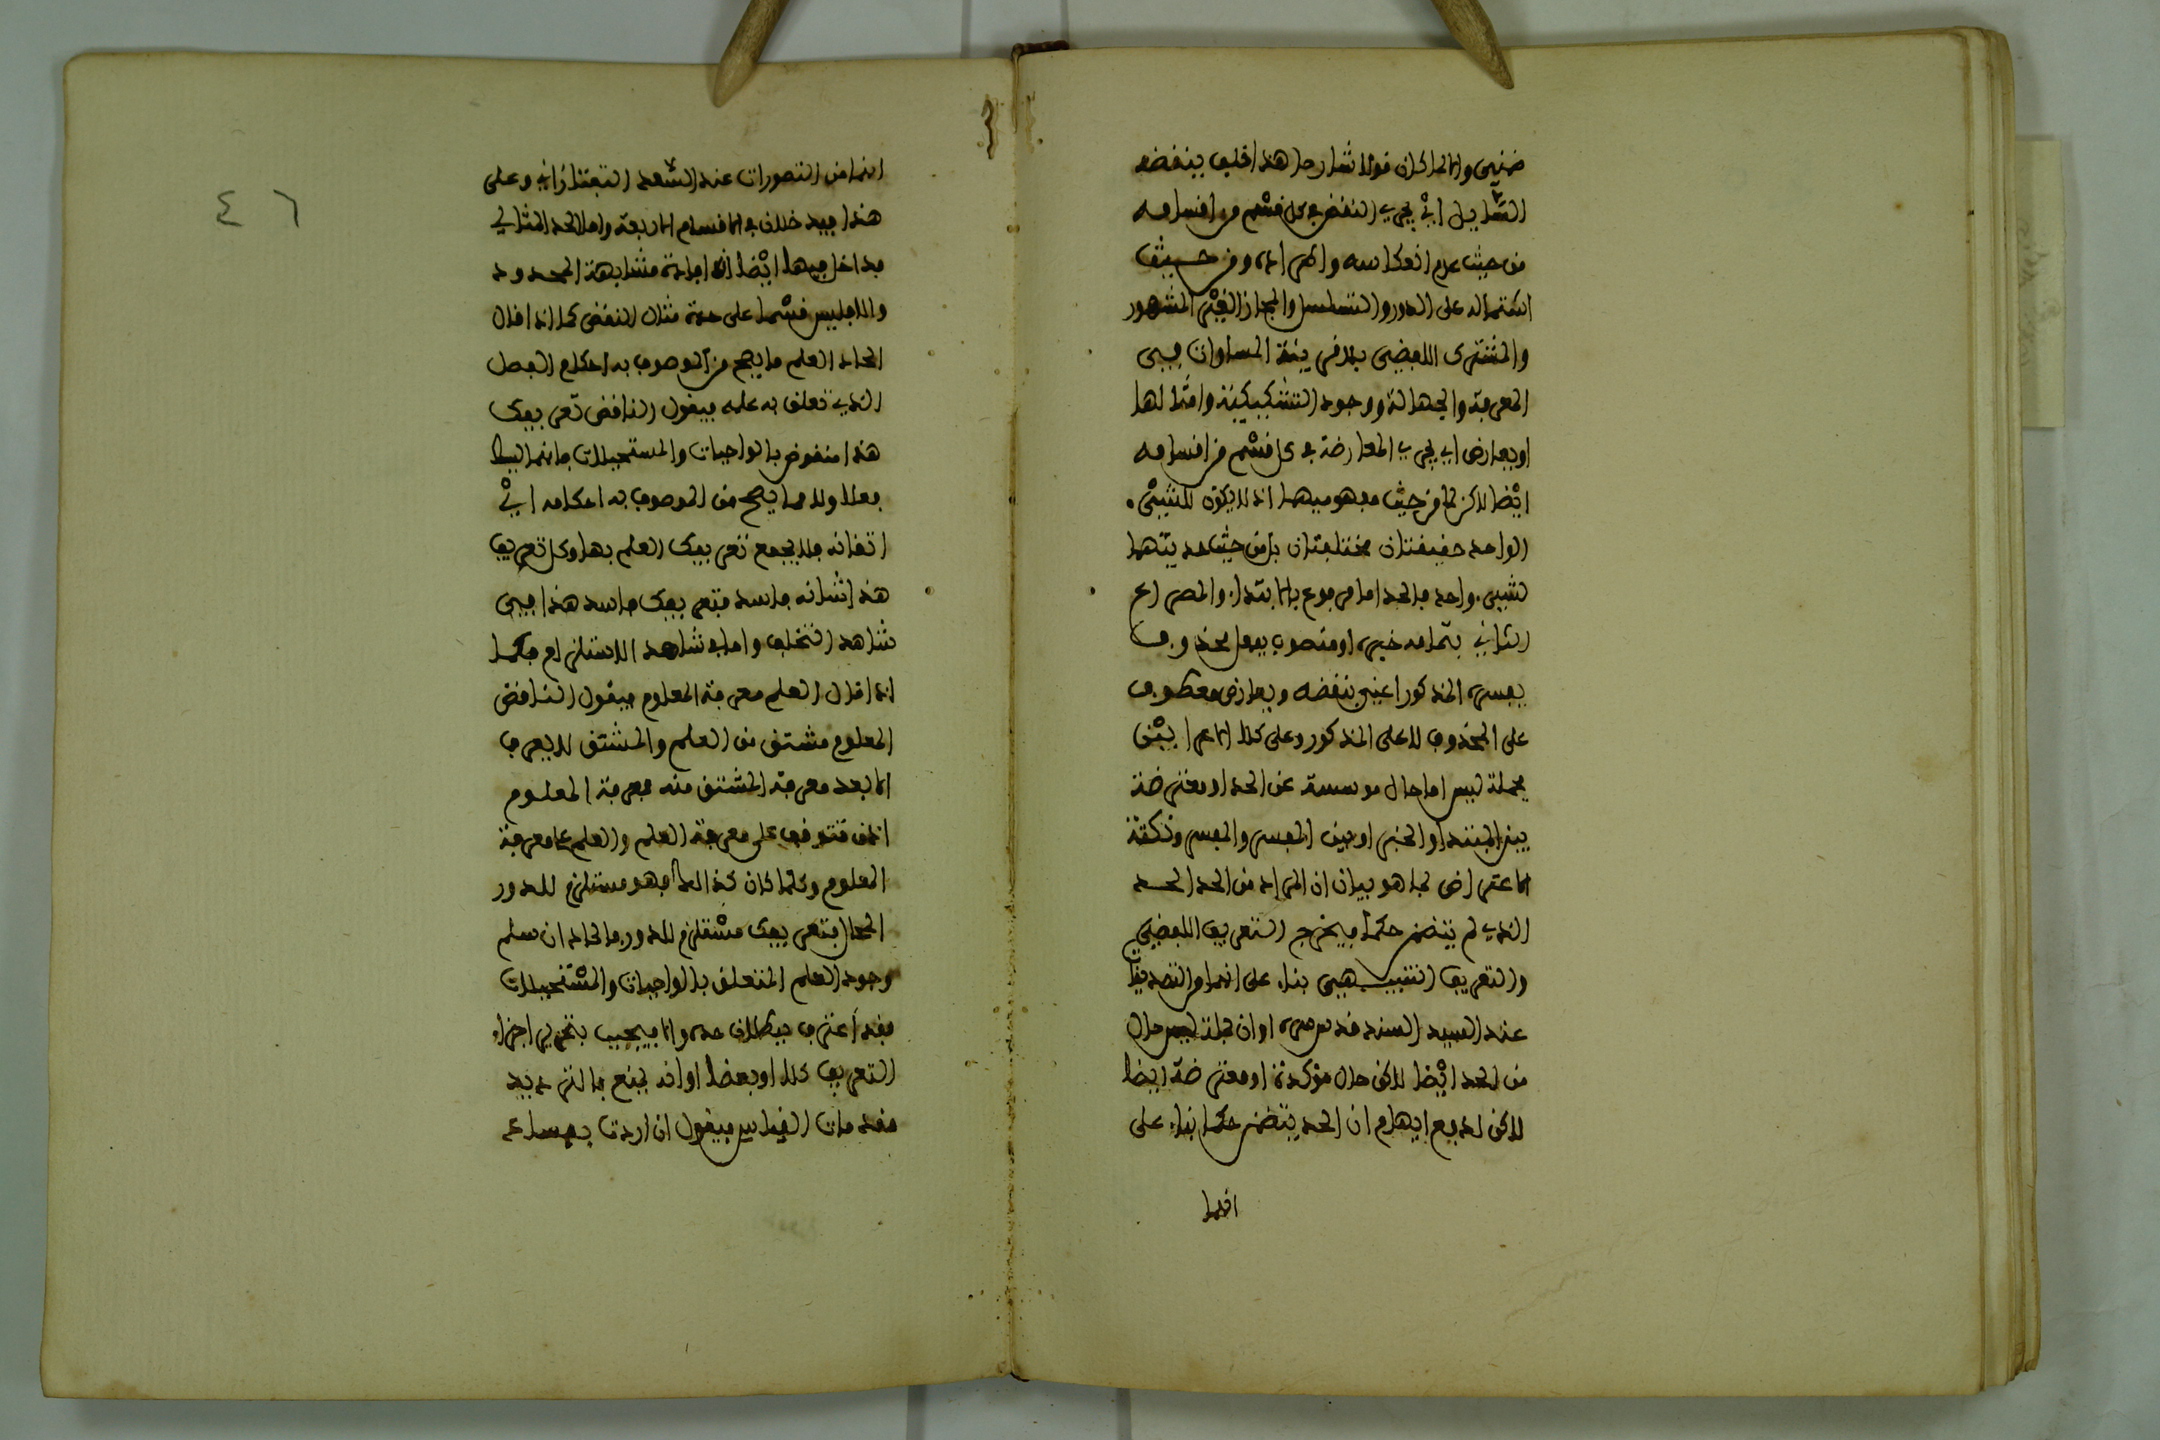 ضمنيى والا لما كان قولا شارحا هذا خلف ينفضه
السايل اي يجري النقض في كل قسم من اقسامه
من حيث عدم انعكاسه واطراده ومن حيث
اشتماله على الدور والتسلسل والمجاز الغير المشهور
والمشترك اللفظي بلا قرينة المساوات في
المعرفة والجهالة ووجود التشكيكية وامثالها
او يعارض اي يجري المعارضة في كل قسم من اقسامه
ايضا لاكن لا من حيث مفهوميهما اذ لا يكون للشيء
الواحد حقيقتان مختلفتان بل من حيث حديتهما
لشيء واحد فالحد اما مرفوع بالابتداء والمصراع
الثاني بتمامه خبره او منصوب بفعل محذوف
يفسره المذكور اعني ينقضه ويعارض معطوف
على المحذوف لا على المذكور وعلى كلا الاعرابين
فجملة ليس اما حال موسسة عن الحد او معترضة
بين المبتدا والخبر او بين المفسر والمفسر ونكتة
الاعتراض لها هو بيان ان المراد من الحد الحد
الذي لم يتضمن حكما فيخرج التعريف اللفظي
والتعريف التنبيهي بناء على انهما من التصديق
عند السيد السند قدس سره او ان جملة ليس حال
من الحد ايضا لاكن حال مؤكدة او معترضة ايضا
لاكن لدفع ايهام ان الحد يتضمن حكما بناء على
انهما
انهما من التصورات عند السعد التفتازاني وعلى
هذا فيه خلاف في الاقسام الاربعة واما الحد المثالي
فداخل فيها ايضا لانه افادة مشابهة المحدود
والا فليس قسما على حدة مثال النقض كما اذا قال
الحاد العلم ما يصح من الموصوف به احكام الفعل
الذي تعلق به علمه فيقول الناقض تعريفك
هذا منقوض بالواجبات والمستحيلات فانهما ليسا
بفعل ولا مما يصح من الموصوف به احكامه اي
اتقانه فلا يجمع تعريفك العلم بها وكل تعريف
هذا شانه فاسد فتعريفك فاسد هذا في
شاهد التخلف واما في شاهد الاستلزام فكما
اذا قال العلم معرفة المعلوم فيقول الناقض
المعلوم مشتق من العلم والمشتق لا يعرف
الا بعد معرفة المشتق منه فمعرفة المعلوم
اذن تتوقف على معرفة العلم والعلم على معرفة
المعلوم وكلما كان كذالك فهو مستلزم للدور
المحال فتعريفك مستلزم للدور فالحاد ان سلم
وجود العلم المتعلق بالواجبات والمستحيلات
فقد اعترف ببطلان حده والا فيجيب بتحرير اجزاء
التعريف كلا او بعضا او انه يمنع بالترديد
مقدمات القياس فيقول ان اردت بفساد
٤٦